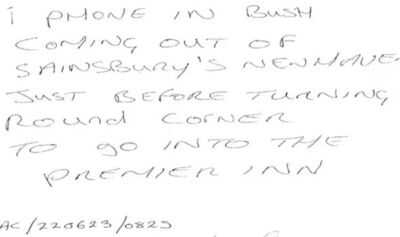 i PHONE IN BUSH
COMING OUT OF
SAINSBURY'S
JUST BEFORE TURNING
ROUND CORNER
TO GO INTO THE
PREMIER INN
AC/220623/0825